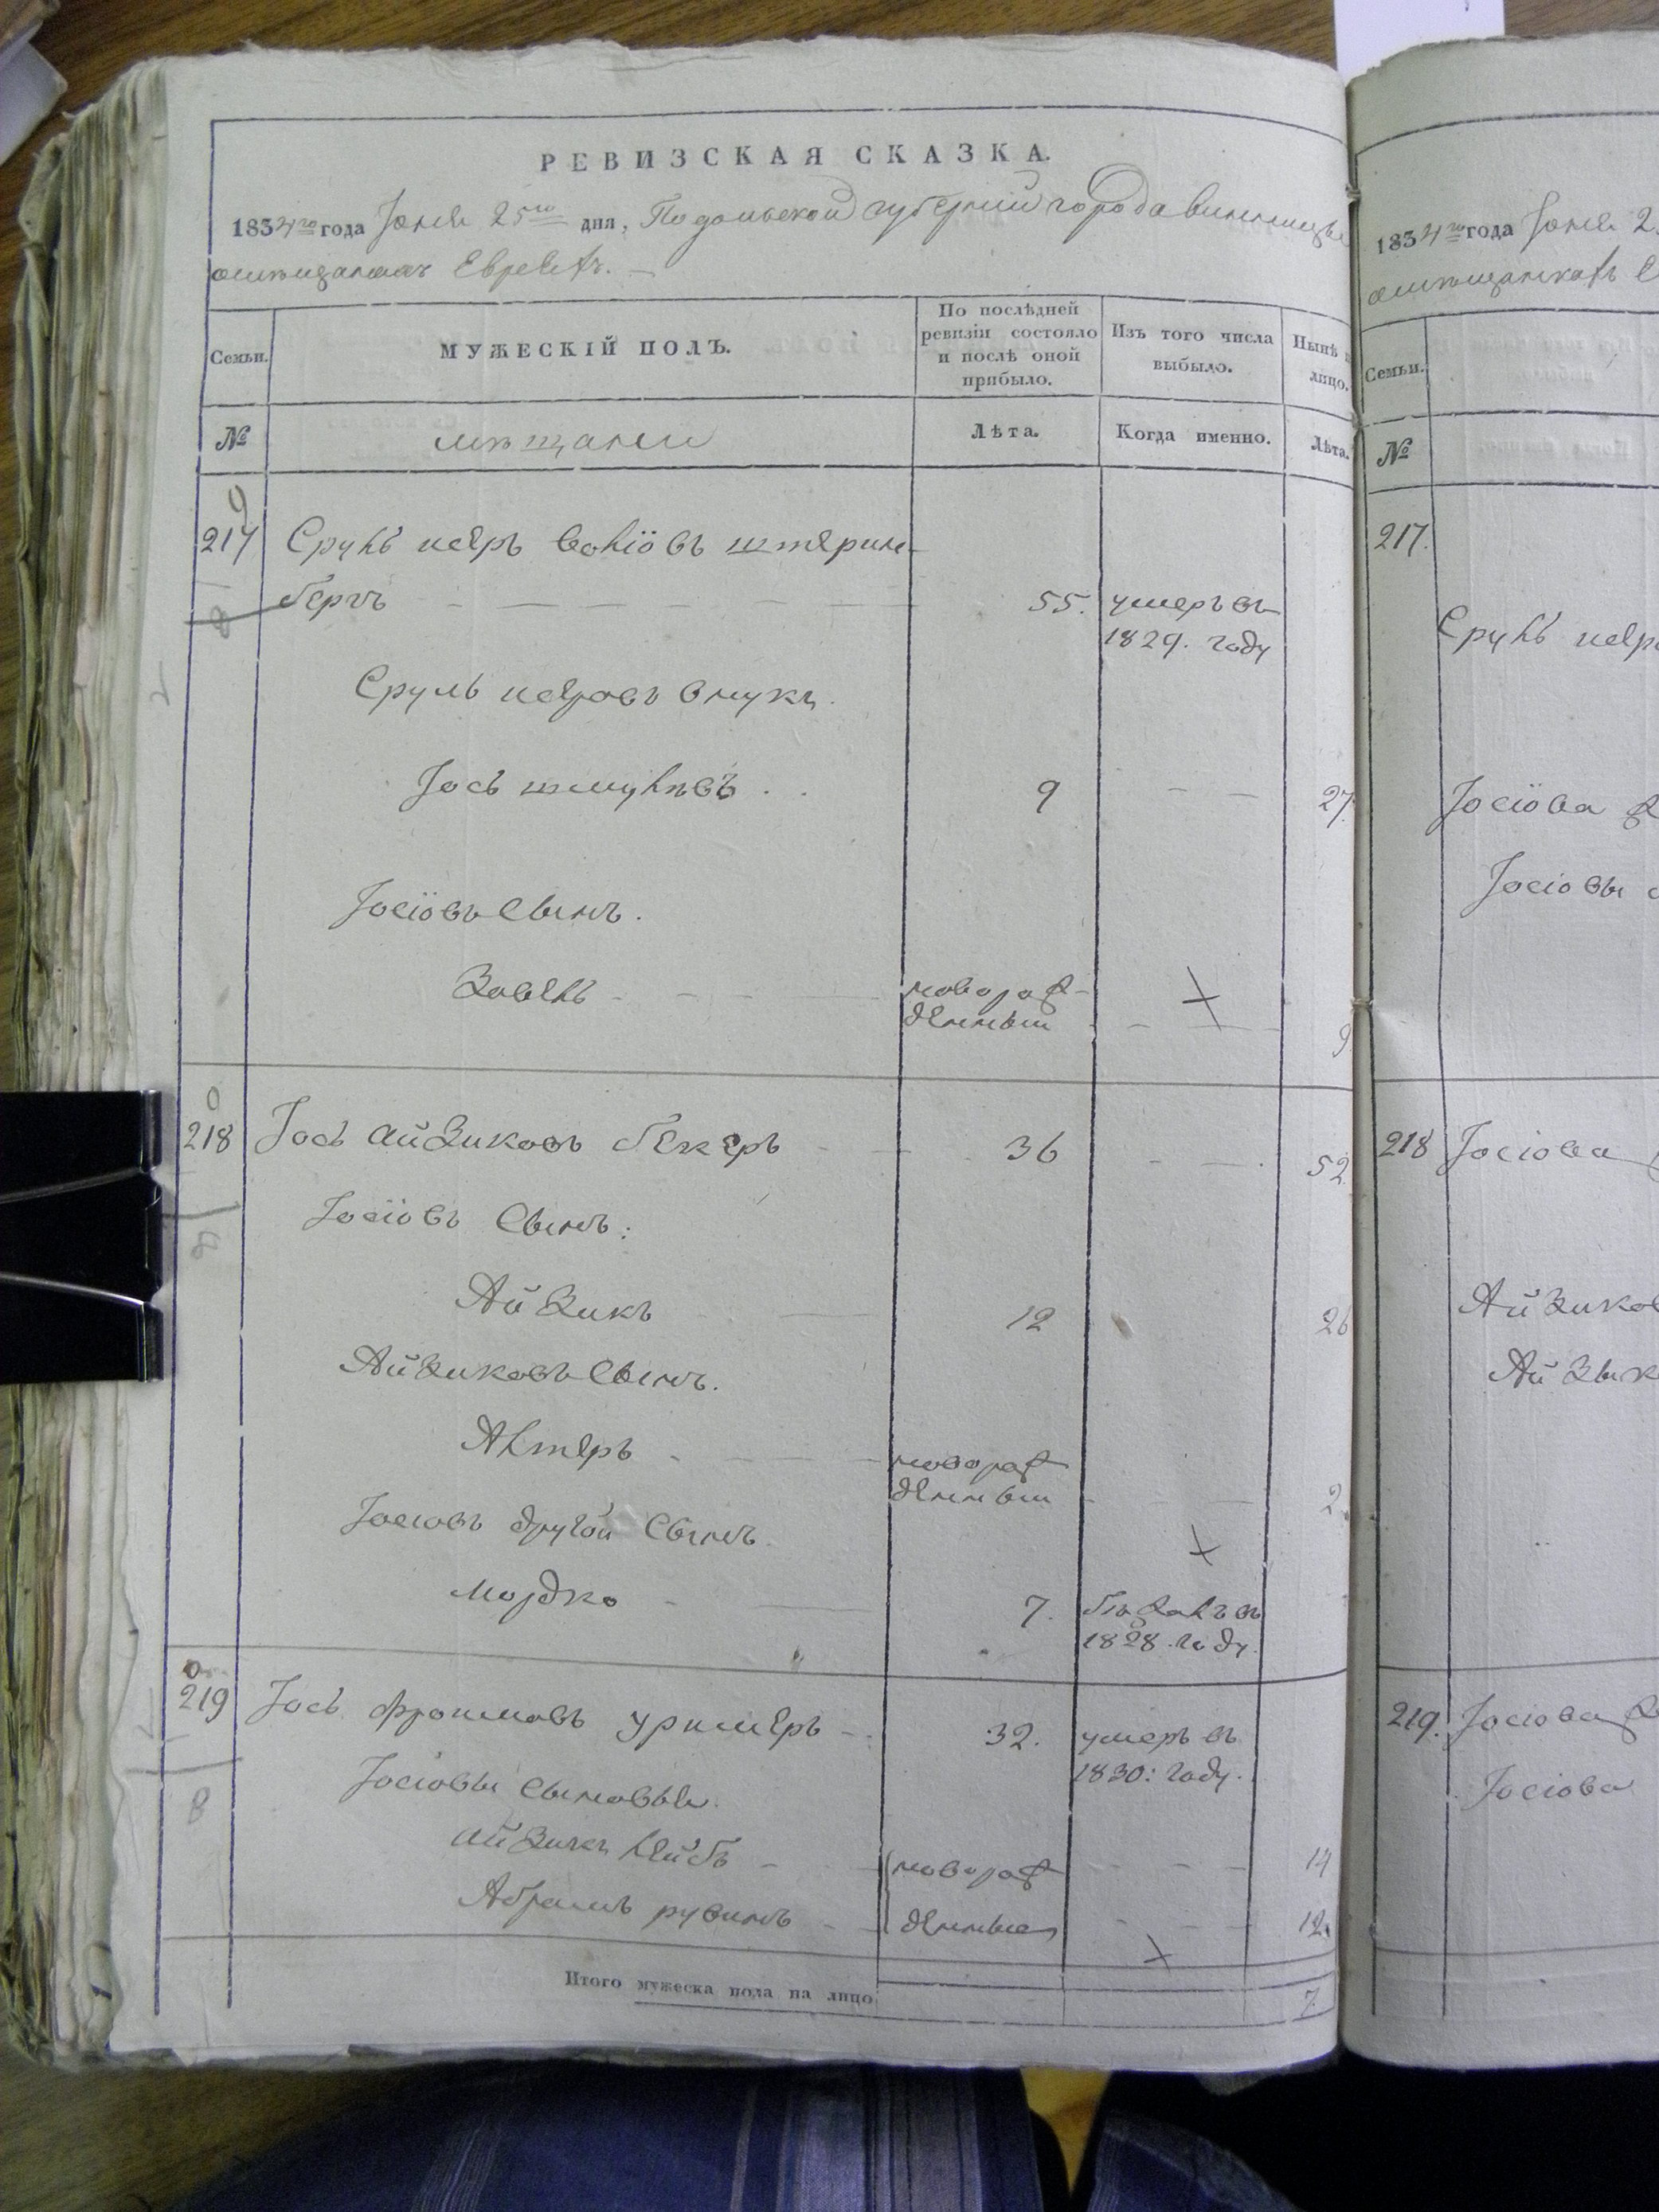 РЕВИЗСКАЯ СКАЗКА.
1834го года Июня 25го дня, Подольской губернии города Винницы
мѣщанахъ Евреяхъ.
Семьи.
МУЖЕСКІЙ ПОЛЪ.
По послѣдней
ревизіи состояло
и послѣ оной
прибыло.
Изъ того числа
выбыло.
Нынѣ
лицо.
№
мѣщани
Лѣта.
Когда именно.
Лѣта.
217 Сруль штерин-
бергъ 55. умеръ въ
1829. году
Сруль внукъ.
Іось шмулѣвъ 9 27.
Іосіовъ сынъ.
Завель новорож-
денный 9
218 Іось Айзиковъ бекеръ 36 52
Іосіовъ сынъ:
Айзикъ 12 26
Айзиковъ сынъ.
Альтеръ новорож
денный 2.
Іосіовъ другой сынъ.
Мордко 7. бѣжалъ въ
1828. году.
219 Іось фроимовъ 32. умеръ въ
1830: году.
Іосіовы сыновья.
айзикъ лейбъ новорож 14
Абрамъ рувинъ денные 12.
Итого мужеска пола на лицо 7.
1834го года Июня 2
мѣщанкахъ Е
Семьи.
№
217.
Сруль
Іосіова
Іосіовы
218 Іосіова
Айзиков
Айзык
219. Іосіова
Іосіова